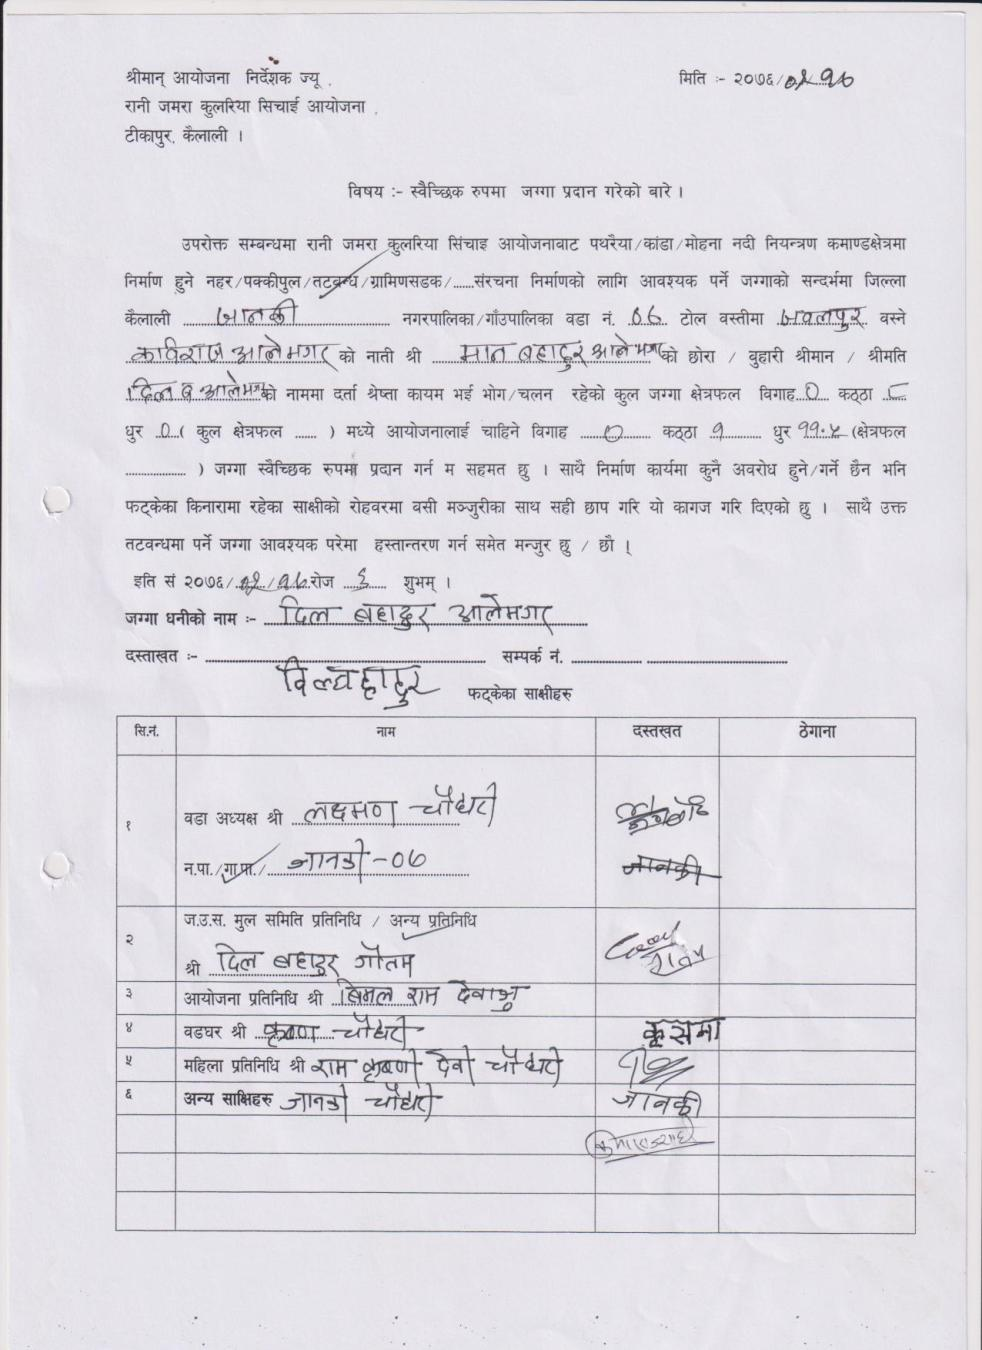 श्रीमान् आयोजना निर्देशक ज्यू ,
मिति :- २०७६/
रानी जमरा कुलरिया सिचाई आयोजना ,
टीकापुर, कैलाली ।
विषय :- स्वैच्छिक रुपमा जग्गा प्रदान गरेको बारे ।
उपरोक्त सम्बन्धमा रानी जमरा कुलरिया सिंचाइ आयोजनावाट पथरैया/कांडा/मोहना नदी नियन्त्रण कमाण्डक्षेत्रमा
निर्माण हुने नहर/पक्कीपुल/तटवन्ध/ग्रामिणसडक/......संरचना निर्माणको लागि आवश्यक पर्ने जग्गाको सन्दर्भमा जिल्ला
कैलाली जानकी नगरपालिका/गाँउपालिका वडा नं. ०७ टोल वस्तीमा जवलपुर वस्ने
आलेमगर को नाती श्री मान बहादुर आलेमगर को छोरा / वुहारी श्रीमान / श्रीमति
दिल ब आलेमगर को नाममा दर्ता श्रेष्ता कायम भई भोग/चलन रहेको कुल जग्गा क्षेत्रफल विगाह ० कठ्ठा ८
धुर ० ( कुल क्षेत्रफल ...... ) मध्ये आयोजनालाई चाहिने विगाह ० कठ्ठा १ धुर ११.५ (क्षेत्रफल
................ ) जग्गा स्वैच्छिक रुपमा प्रदान गर्न म सहमत छु । साथै निर्माण कार्यमा कुनै अवरोध हुने/गर्ने छैन भनि
फट्केका किनारामा रहेका साक्षीको रोहवरमा वसी मञ्जुरीका साथ सही छाप गरि यो कागज गरि दिएको छु । साथै उक्त
तटवन्धमा पर्ने जग्गा आवश्यक परेमा हस्तान्तरण गर्न समेत मन्जुर छु / छौ ।
इति सं २०७६/ रोज ३ शुभम् ।
जग्गा धनीको नाम :- दिल बहादुर आलेमगर
दस्ताखत :- सम्पर्क नं.
दिलबहादुर फट्केका साक्षीहरु
सि.नं. नाम दस्तखत ठेगाना
१ वडा अध्यक्ष श्री लक्ष्मण चौधरी
न.पा./गा.पा./ जानकी -०७ जानकी
२ ज.उ.स. मुल समिति प्रतिनिधि / अन्य प्रतिनिधि
श्री दिल बहादुर गौतम
३ आयोजना प्रतिनिधि श्री बिमल राम
४ वडघर श्री कृष्ण चौधरी कूसमा
५ महिला प्रतिनिधि श्री राम कृष्णी देवी चौधरी
६ अन्य साक्षिहरु जानकी चौधरी जानकी